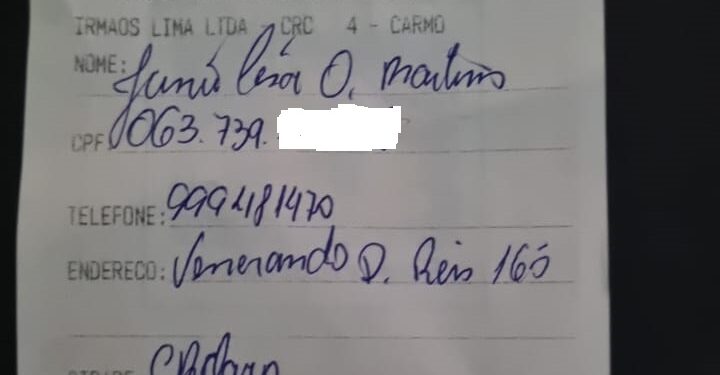 IRMAOS LIMA LTDA - CRC 4 - CARMO
NOME: César O. Martins
CPF 063.739.
TELEFONE: 999481470
ENDERECO: Venerando D. Reis 165